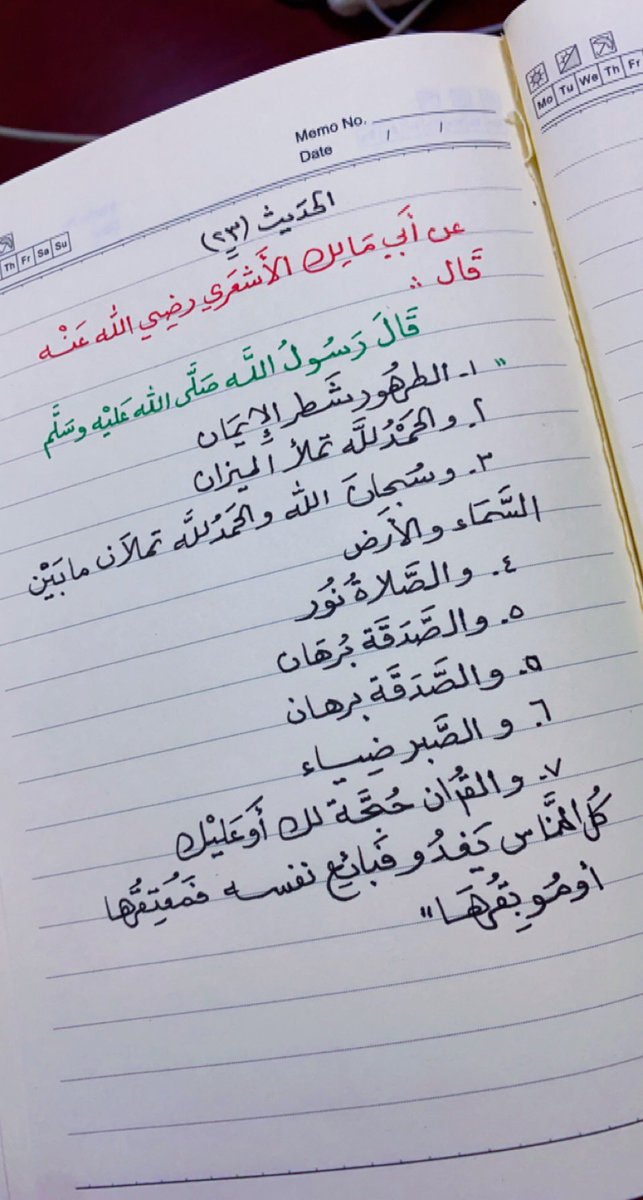 Memo No.
Date / /
Mo Tu We Th Fr
Th Fr Sa Su
الحَدِيث (٢٣)
عن أَبي مَالِك الأَشعَرِي رضِي الله عَنْه
قَال :
قَالَ رَسُولُ اللَّه صَلَّى الله عَلَيْه وسَلَّم
" ١- الطهُور شَطر الإِيمَان
٢. والحَمْدُ للَّه تملأ الميزان
٣. وسُبحانَ الله والحَمْدُ للَّه تملآن ما بَيْن
السَّمَاء والأَرَض
٤. والصَّلاةُ نُور
٥. والصَّدَقَة بُرهَان
٥. والصَّدَقَة برهان
٦. والصَّبر ضِياء
٧. والقُرآن حُجَّة لك أَو عَليْك
كُل النَّاس يَغدُو فَبائِع نفسه فَمُعتِقُها
أو مُوبِقُهَا "